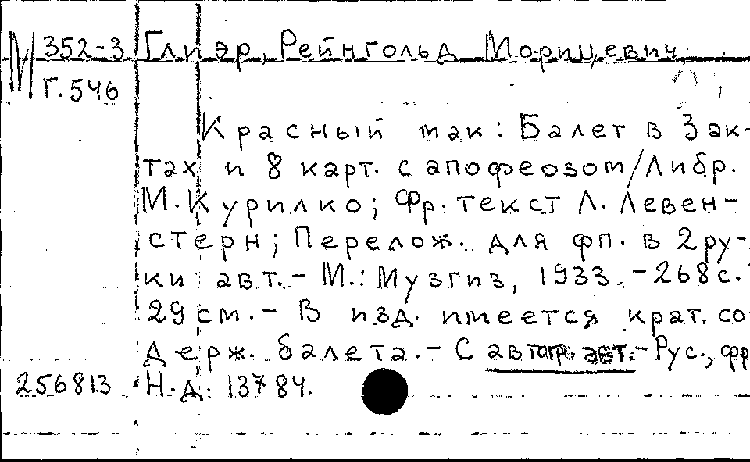 М 352-3 Глиэр, Рейнгольд Морицевич
Г.546
Красный мак: Балет в 3 ак-
тах и 8 карт. с апофеозом/Либр.
М.Курилко; Фр. текст Л. Левен-
стерн; Перелож. для фп. в 2 ру-
ки авт. - М.: Музгиз, 1933. - 268 с.
29 см. - В изд. имеется крат. со
держ. балета. - С автогр. авт. - Рус., фр
256813 Н.д. 13784.